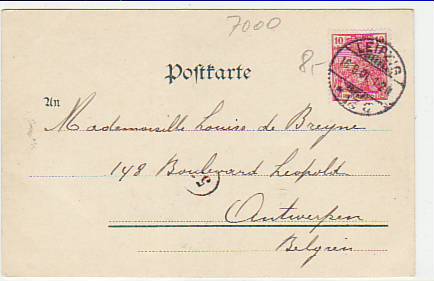 7000
8,-
10 10
LEIPZIG
Postkarte
An
Mademoiselle Louise de Breyne
148 Boulevard Leopold
5
Antwerpen
Belgien